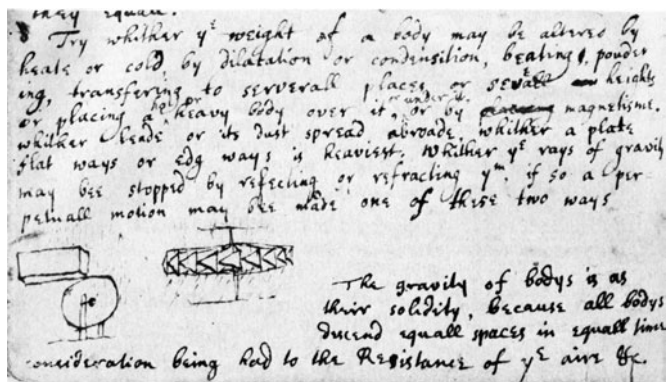 they equall.
Try whither yᵉ weight of a body may be altered by
heate or cold by dilatation or condensition, beating, powder
ing, transfering to serverall places or sevᵉall heights
or placing a hot or heavy body over it or under it, or by magnetisme.
whither leade or its dust spread abroade, whither a plate
flat ways or edg ways is heaviest. Whither yᵉ rays of gravity
may bee stopped by reflecting or refracting yᵐ, if so a per-
petuall motion may bee made one of these two ways
The gravity of bodys is as
their solidity, because all bodys
descend equall spaces in equall times
consideration being had to the Resistance of yᵉ aire &c.